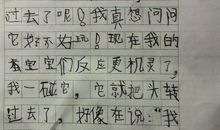 过去了呢！我真想问问
它好不好玩！现在我的
蚕宝宝们反应更机灵了，
我一碰它，它就把头转
过去了，好像在说：“我